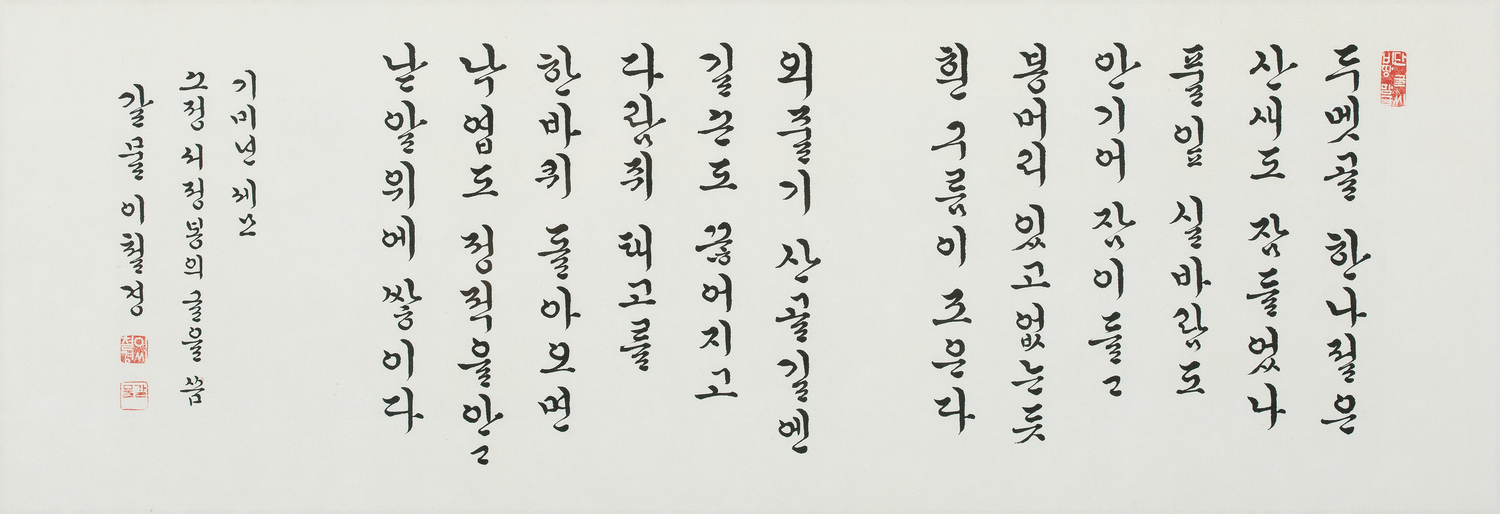 두멧골 한나절은
산새도 잠들었나
풀잎 실바람도
안기어 잠이들고
봉머리 있고없는듯
흰 구름이 조은다
외줄기 산골길엔
길손도 끊어지고
다람쥐 퇴고를
한바퀴 돌아오면
낙엽도 정적을안고
낱알위에 쌓이다
기미년 세모
소정 서정봉의글을 씀
갈물 이철경
갈물